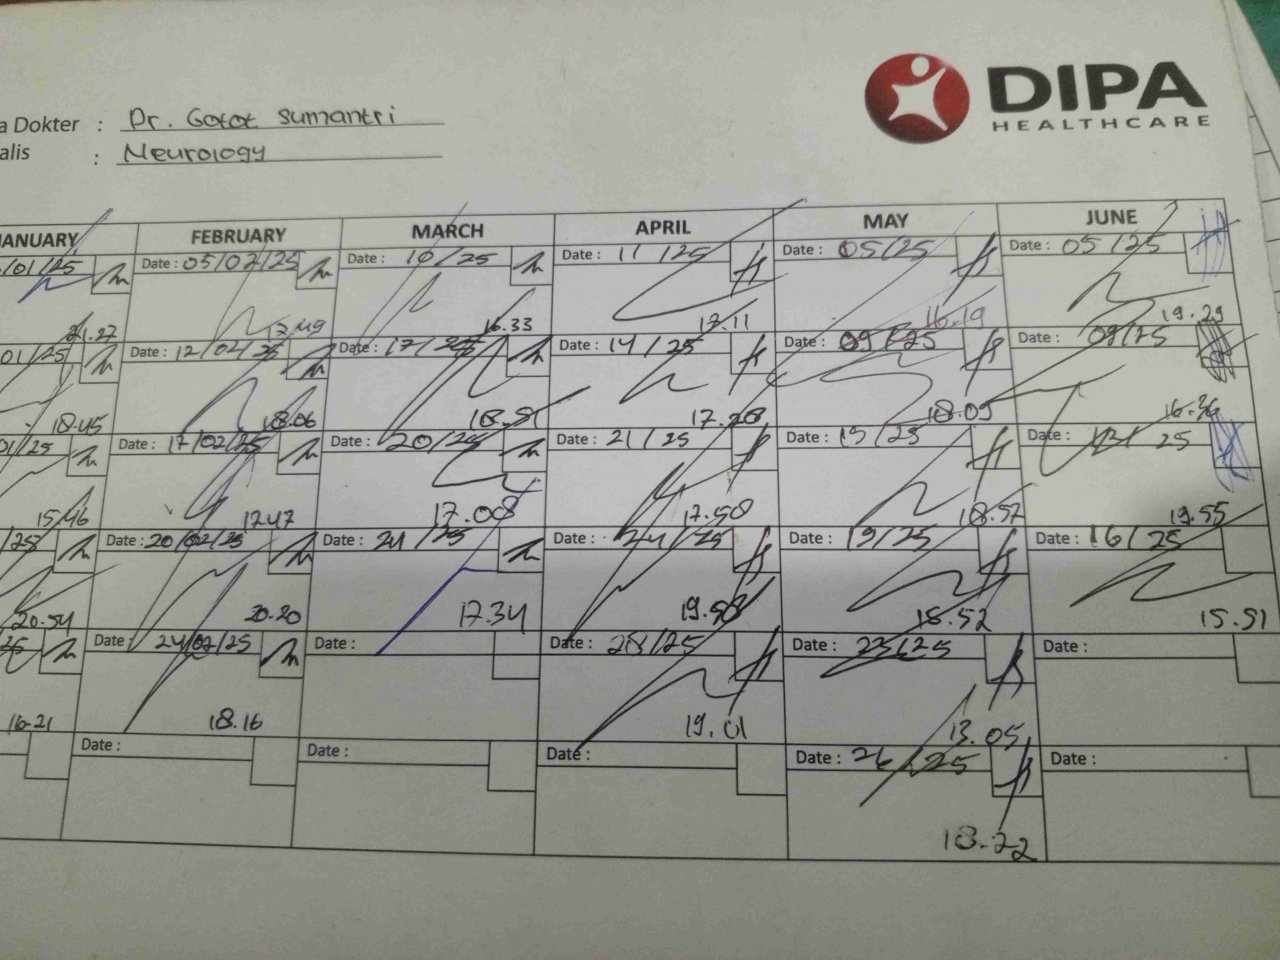 DIPA
HEALTHCARE
a Dokter : Dr. Gatot Sumantri
alis : Neurology
ANUARY FEBRUARY MARCH APRIL MAY JUNE
/01/25 Date : 05/02/25 Date : 10/25 Date : 11/25 Date : 05/25 Date : 05/25
21.27 17.49 16.33 17.11 16.19 19.29
01/25 Date : 12/02/25 Date : 17/25 Date : 14/25 Date : 09/25 Date : 09/25
18.45 18.06 18.51 17.28 18.09 16.36
01/25 Date : 17/02/25 Date : 20/25 Date : 21/25 Date : 15/25 Date : 25
15.46 17.47 17.08 17.58 18.57 19.55
/25 Date : 20/02/25 Date : 24/25 Date : 24/25 Date : 19/25 Date : 16/25
20.54 20.20 17.34 19.58 18.52 15.51
25 Date : 24/02/25 Date : Date : 28/25 Date : 23/25 Date :
16.21 18.16 19.01 13.05
Date : Date : Date : Date : 26/25 Date :
18.22